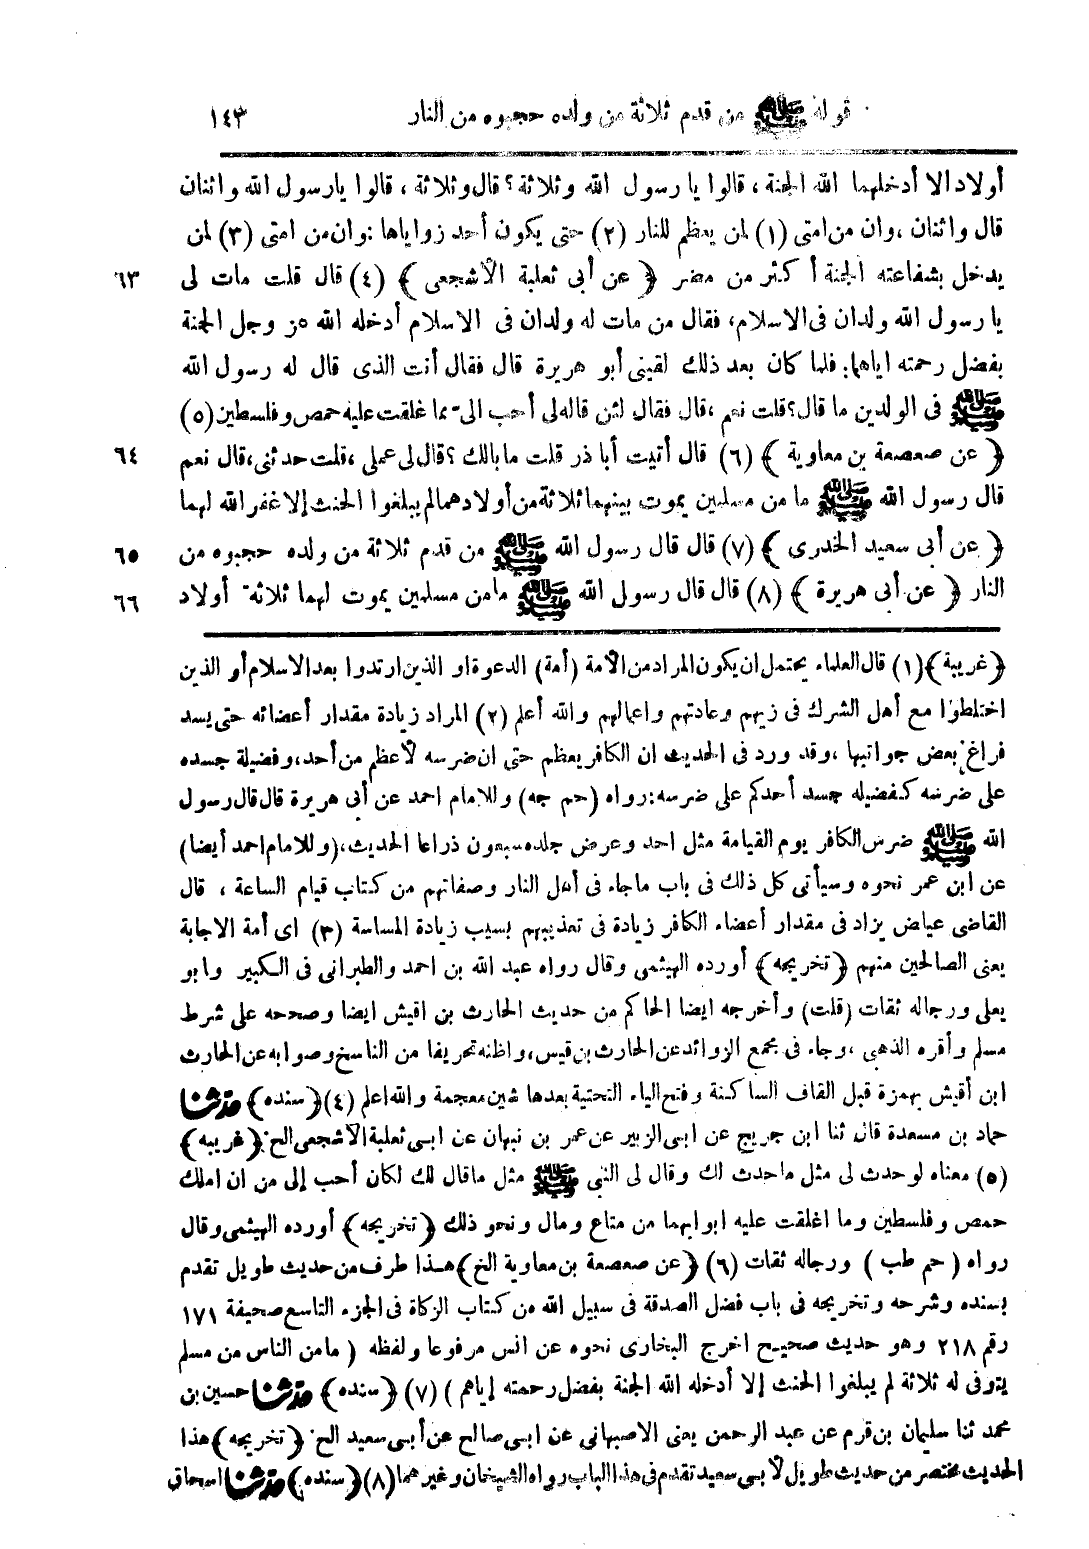 قوله ﷺ من قدم ثلاثة من ولده حجبوه من النار ١٤٣
أولاد الا أدخلهما الله الجنة ، قالوا يا رسول الله وثلاثة ؟ قال وثلاثة ، قالوا يارسول الله واثنان
قال واثنان ، وان من امتى (١) لمن يعظم للنار (٢) حتى يكون أحد زواياها : وان من امتى (٣) لمن
يدخل بشفاعته الجنة أكثر من مضر ﴿ عن أبى ثعلبة الأشجعى ﴾ (٤) قال قلت مات لى ٦٣
يا رسول الله ولدان فى الاسلام، فقال من مات له ولدان فى الاسلام أدخله الله عز وجل الجنة
بفضل رحمته اياهما. فلما كان بعد ذلك لقينى أبو هريرة قال فقال أنت الذى قال له رسول الله
ﷺ فى الولدين ما قال؟ قلت نعم ، قال فقال لئن قاله لى أحب الىّ مما غلقت عليه حمص وفلسطين (٥)
﴿ عن صعصعة بن معاوية ﴾ (٦) قال أتيت أبا ذر قلت ما بالك ؟ قال لى عملى ، قلت حدثنى، قال نعم ٦٤
قال رسول الله ﷺ ما من مسلمين يموت بينهما ثلاثة من أولادهما لم يبلغوا الحنث إلا غفر الله لهما
﴿ عن أبى سعيد الخدرى ﴾ (٧) قال قال رسول الله ﷺ من قدم ثلاثة من ولده حجبوه من ٦٥
النار ﴿ عن أبى هريرة ﴾ (٨) قال قال رسول الله ﷺ مامن مسلمين يموت لهما ثلاثة أولاد ٦٦
﴿غريبة﴾ (١) قال العلماء يحتمل ان يكون المراد من الأمة (أمة) الدعوة او الذين ارتدوا بعد الاسلام أو الذين
اختلطوا مع أهل الشرك فى زيهم وعادتهم واعمالهم والله أعلم (٢) المراد زيادة مقدار أعضائه حتى يسد
فراغ بعض جوانبها ، وقد ورد فى الحديث ان الكافر يعظم حتى ان ضرسه لأعظم من أحد، وفضيلة جسده
على ضرسه كفضيله جسد أحدكم على ضرسه: رواه (حم جه) وللامام احمد عن أبى هريرة قال قال رسول
الله ﷺ ضرس الكافر يوم القيامة مثل احد وعرض جلده سبعون ذراعا الحديث، (وللامام احمد أيضا)
عن ابن عمر نحوه وسيأتى كل ذلك فى باب ماجاء فى أهل النار وصفاتهم من كتاب قيام الساعة ، قال
القاضى عياض يزاد فى مقدار أعضاء الكافر زيادة فى تعذيبهم بسبب زيادة المماسة (٣) اى أمة الاجابة
يعنى الصالحين منهم ﴿تخريجه﴾ أورده الهيثمى وقال رواه عبد الله بن احمد والطبرانى فى الكبير وابو
يعلى ورجاله ثقات (قلت) وأخرجه ايضا الحاكم من حديث الحارث بن اقيش ايضا وصححه على شرط
مسلم وأقره الذهبى ، وجاء فى مجمع الزوائد عن الحارث بن قيس، واظنه تحريفا من الناسخ وصوابه عن الحارث
ابن أقيش بهمزة قبل القاف الساكنة وفتح الياء التحتية بعدها شين معجمة والله اعلم (٤) ﴿سنده﴾ حدثنا
حماد بن مسعدة قال ثنا ابن جريج عن ابى الزبير عن عمر بن نبهان عن ابى ثعلبة الأشجعى الخ ﴿غريبه﴾
(٥) معناه لو حدث لى مثل ما حدث لك وقال لى النبى ﷺ مثل ماقال لك لكان أحب إلى من ان املك
حمص وفلسطين وما اغلقت عليه ابوابهما من متاع ومال ونحو ذلك ﴿تخريجه﴾ أورده الهيثمى وقال
رواه ( حم طب ) ورجاله ثقات (٦) ﴿عن صعصعة بن معاوية الخ﴾ هذا طرف من حديث طويل تقدم
بسنده وشرحه وتخريجه فى باب فضل الصدقة فى سبيل الله من كتاب الزكاة فى الجزء التاسع صحيفة ١٧١
رقم ٢١٨ وهو حديث صحيح اخرج البخارى نحوه عن انس مرفوعا ولفظه ( مامن الناس من مسلم
يتوفى له ثلاثة لم يبلغوا الحنث إلا أدخله الله الجنة بفضل رحمته إياهم ) (٧) ﴿سنده﴾ حدثنا حسين بن
محمد ثنا سليمان بن قرم عن عبد الرحمن يعنى الاصبهانى عن ابى صالح عن أبى سعيد الخ ﴿تخريجه﴾ هذا
الحديث مختصر من حديث طويل لأبى سعيد تقدم فى هذا الباب رواه الشيخان وغيرهما (٨) ﴿سنده﴾ حدثنا اسحاق